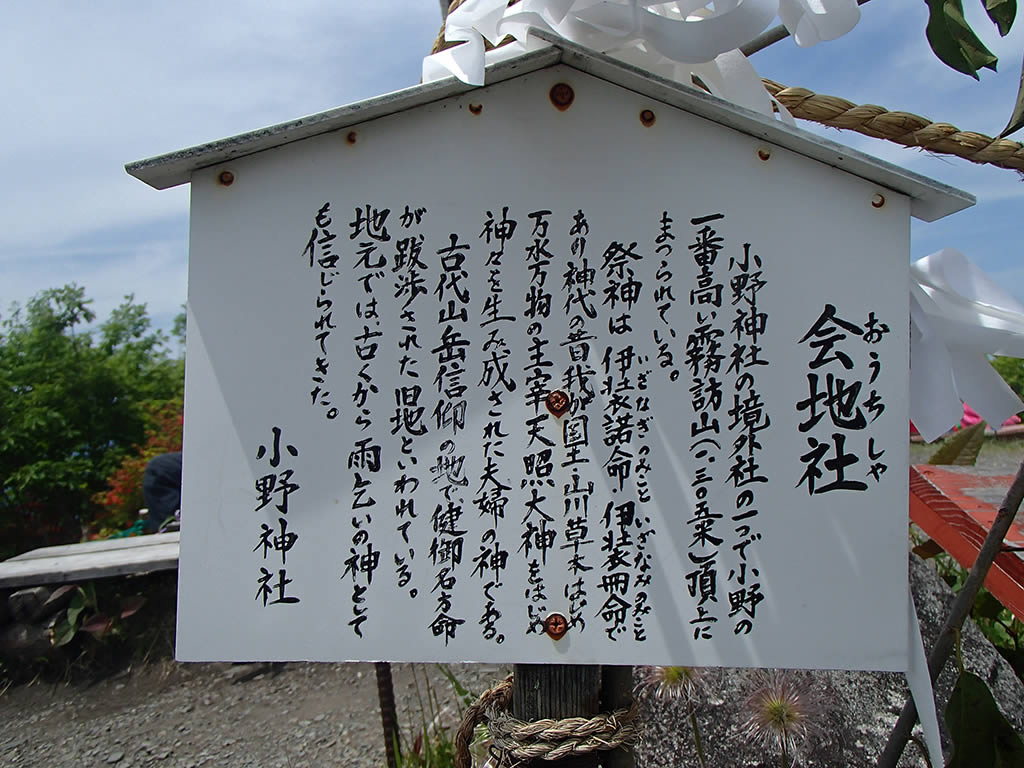 おうちしゃ
会地社
小野神社の境外社の一つで小野の
一番高い霧訪山(一・三〇五米)頂上に
まつられている。
いざなぎのみこと いざなみのみこと
祭神は 伊壮諾命・伊壮冊命で
あり神代の昔我が国土・山川草木はじめ
万水万物の主宰天照大神をはじめ
神々を生み成された夫婦の神である。
古代山岳信仰の地で健御名方命
が跋渉された旧地といわれている。
地元では古くから雨乞いの神として
も信じられてきた。
小野神社